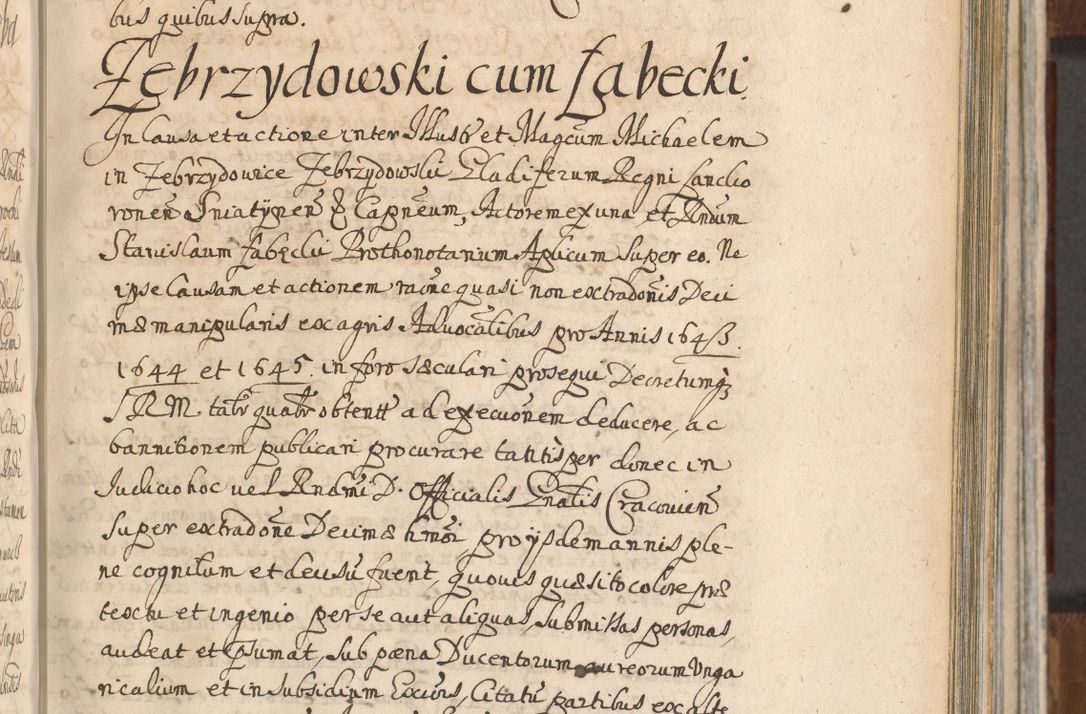 bus quibus supra.
Zebrzydowski cum Łabecki.
In Causa et actione inter Illustr et Magcum Michaelem
in Zebrzydowice Zebrzydowski Gladiferum Regni Lanclo
ronen Sniatynen & Capneum, Actorem ex una, et Rndum
Stanislaum Łabęcki Prothonotarium Aplicum super eo. Ne
ipse Causam et actionem raone quasi non extradonis Deci
mæ manipularis ex agris Advocalibus pro Annis 1643.
1644 et 1645. in foro sæculari prosequi Decretumq3
S R M. obtent ad executionem deducere, ac
bannitionem publicari procurare tantisper donec in
Iudicio hoc vel Rndmi D. Officialis Gnalis Cracovien
super extradone Decimæ hmoi pro ijsdem annis ple-
ne cognitum et decisu fuerit, quovis quæsito colore præ
textu et ingenio per se aut aliquas submissas personas,
audeat et psumat, sub pæna Ducentorum aureorum Unga
ricalium et in subsidium Excois, Citatu partibus ex alte